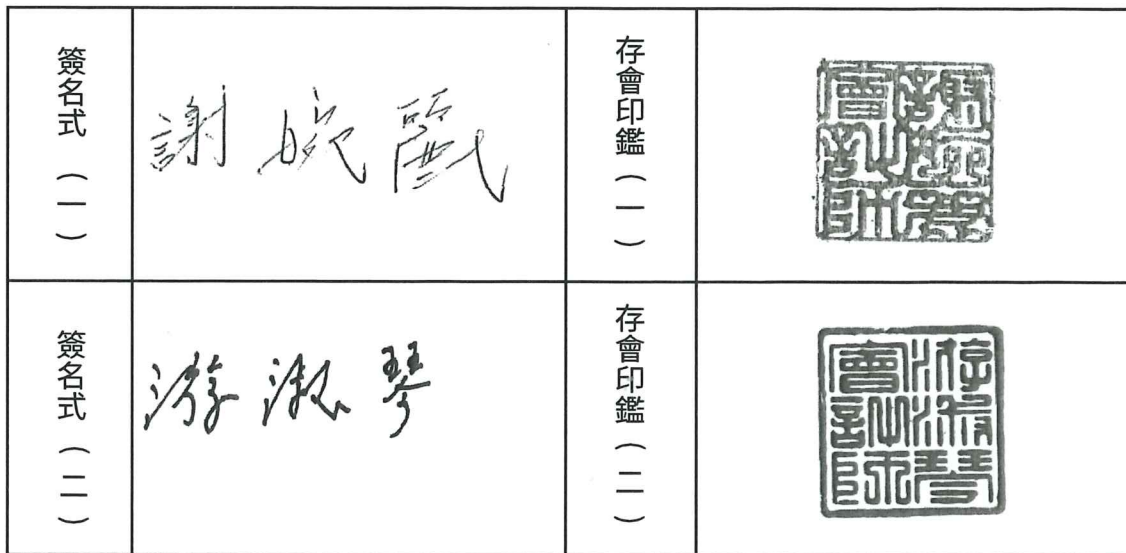 簽名式（一）
謝
存會印鑑（一）
會計師
簽名式（二）
游淑琴
存會印鑑（二）
游淑琴
會計師